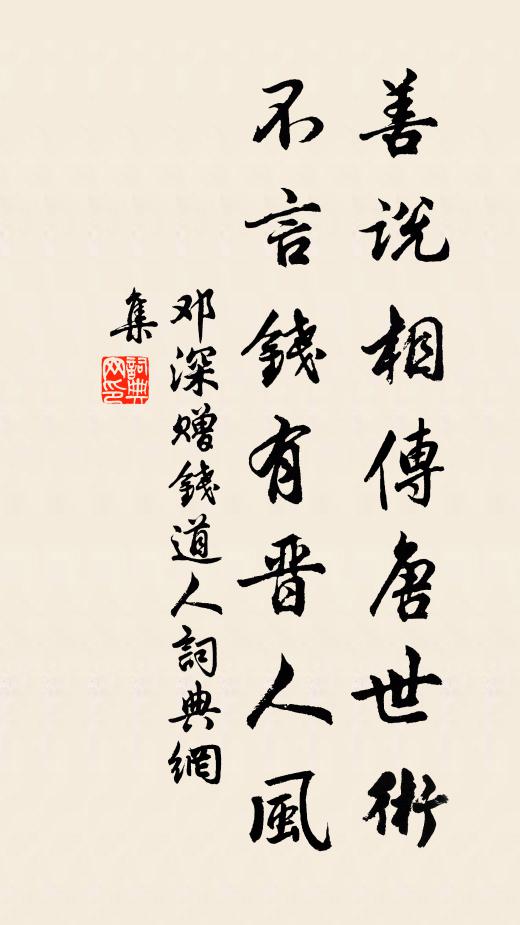 善説相傳唐世術
不言錢有晋人風
邓深赠錢道人詞典網
集
詞典
网印